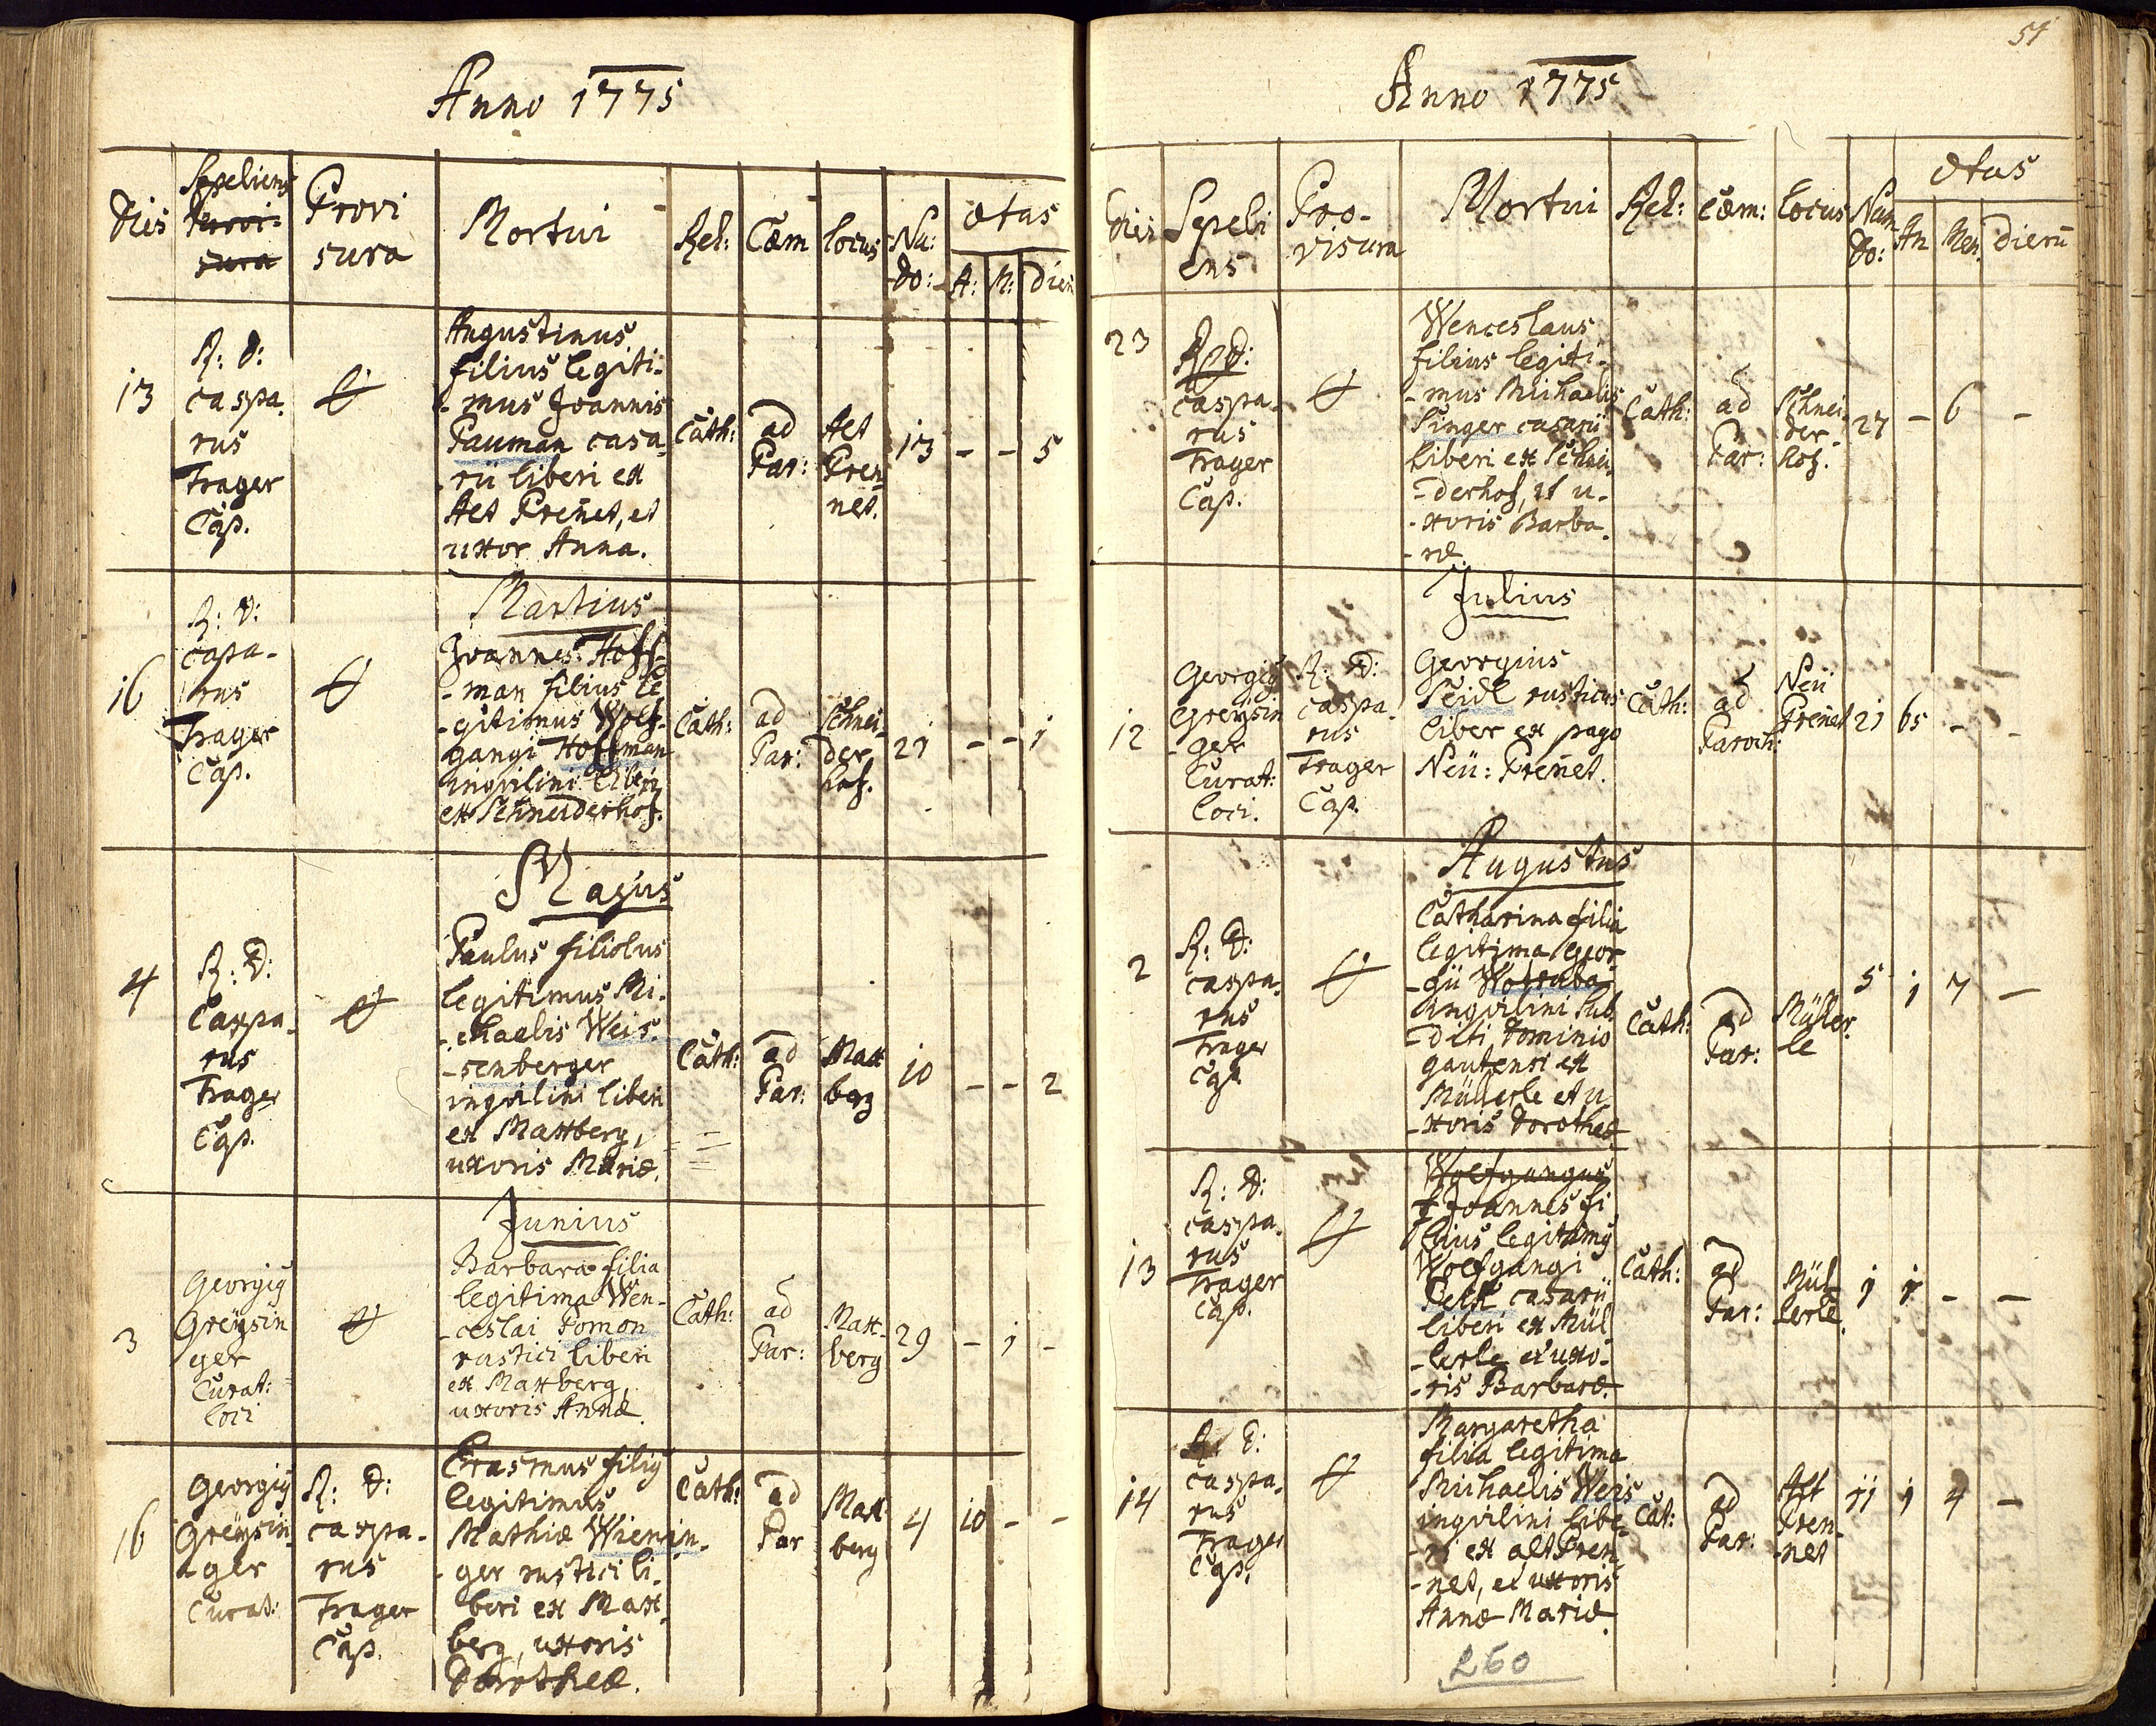 Anno 1775
Dies
Sepeliens
Provi
sura
Mortui
Rel:
Cæm
locus
Nu:
do:
ætas
A:
M:
dieru
13
R: D:
caspa.
rus
Trager
Cap.
Augustinus
filius legiti-
-mus Joannis
Pauman casa-
-rii liberi ex
Alt Preñet, et
uxor Anna.
Cath:
ad
Par:
Alt
Pren
net.
13 - - 5
Martius
16
R: D:
caspa-
rus
Trager
Cap.
Joannes Hoff-
-man filius le
-gitimus Wolf-
gangi Hoffman
inqvilini liberi
ex Schneiderhof.
Cath:
ad
Par:
Schnei-
der
hof.
21 - - 1
Majus
4
R: D:
Caspa-
rus
Trager
Cap.
Paulus filiolus
legitimus Mi-
-chaelis Weis-
-senberger
inqvilini liberi
ex Maxberg,
uxoris Mariæ.
Cath:
ad
Par:
Max
berg
10 - - 2
Junius
3
Georgius
Greÿsin
ger
Curat:
loci
Barbara filia
legitima Wen-
-ceslai Pomon
rustici liberi
ex Maxberg,
uxoris Annæ.
Cath:
ad
Par:
Max-
berg
29 - 1 -
16
Georgius
Greÿsin-
ger
Curat:
R: D:
caspa-
rus
Trager
Cap.
Erasmus filius
legitimus
Mathiæ Wienin-
-ger rustici li-
beri ex Max-
berg, uxoris
Dorotheæ.
Cath:
ad
Par
Max
berg
4 10 - -
54
Anno 1775
Dies
Sepeli
ens
Pro-
visura
Mortui
Rel:
Cæm:
locus
Num
do:
ætas
An
Men.
dierū
23
R: D:
Caspa-
rus
Trager
Cap.
Wenceslaus
filius legiti-
-mus Michaelis
Singer casarii
liberi ex Schnei-
-derhof, et u-
-xoris Barba-
-ræ.
Cath:
ad
Par:
Schnei
der-
hof.
27 - 6 -
Julius
12
Georgius
Greÿsin
-ger
Curat:
loci.
R: D:
caspa-
rus
Trager
Cap.
Georgius
Seidl rusticus
liber ex pago
Neü: Preñet.
Cath:
ad
Paroch:
Neü
Preñet
21 65 - -
Augustus
2
R: D:
caspa-
rus
Trager
Cap.
Catharina filia
legitima Geor-
-gii Wottaba
inqvilini sub
-diti Dominio
gautensi ex
Müllerle et u
-xoris Dorotheæ
Cath:
ad
Par:
Müller
le
5 1 7 -
13
R: D:
caspa-
rus
Trager
Cap.
Wolfgangus
Joannes fi
lius legitimus
Wolfgangi
casarii
liberi ex Mül
-lerle et uxo-
-ris Barbaræ.
Cath:
ad
Par:
Mül
lerle.
1 1 - -
14
R: D:
caspa-
rus
Trager
Cap.
Margaretha
filia legitima
Michaelis Weis
inqvilini libe-
-ri ex alt Pren
-net, et uxoris
Annæ Mariæ.
Cat:
ad
Par:
Alt
Pren-
net
11 1 4 -
260